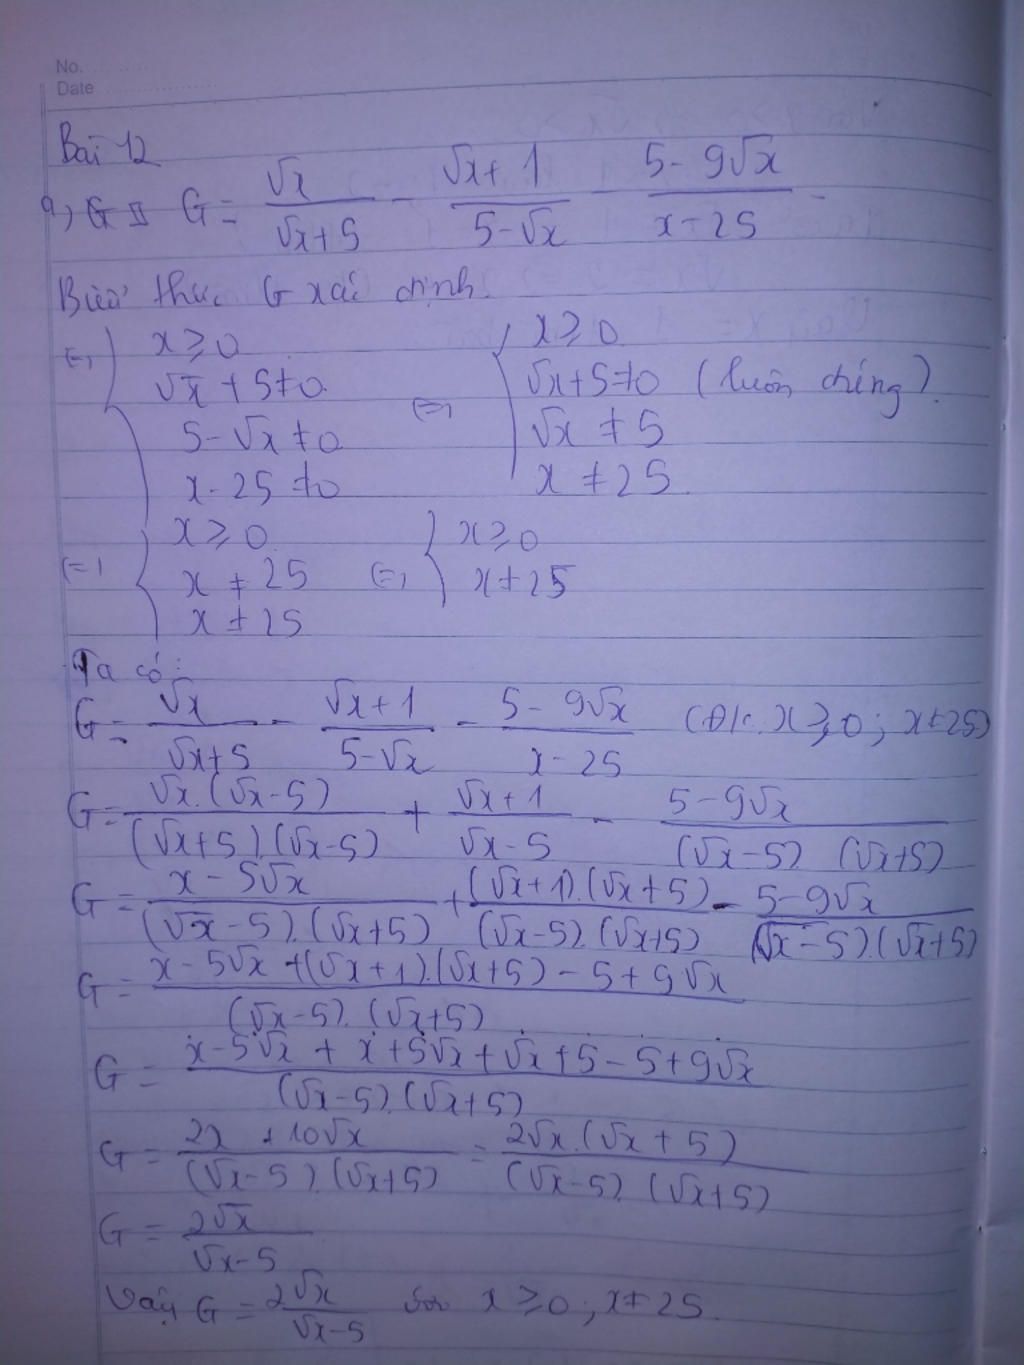 No.
Date
Bài 12
a, G = G = √x/(√x+5) - (√x+1)/(5-√x) - (5-9√x)/(x-25)
Biểu thức G xác định
(=) { x ≥ 0 (=) { x ≥ 0
√x + 5 ≠ 0 √x+5 ≠ 0 (luôn đúng).
5 - √x ≠ 0 √x ≠ 5
x - 25 ≠ 0 x ≠ 25
(=) { x ≥ 0 (=) { x ≥ 0
x ≠ 25 x ≠ 25
x ≠ 25
Ta có:
G = √x/(√x+5) - (√x+1)/(5-√x) - (5-9√x)/(x-25) (ĐK: x ≥ 0; x ≠ 25)
G = √x.(√x-5)/(√x+5).(√x-5) + (√x+1)/(√x-5) - (5-9√x)/(√x-5)(√x+5)
G = (x-5√x)/(√x-5).(√x+5) + (√x+1).(√x+5)/(√x-5).(√x+5) - (5-9√x)/(√x-5).(√x+5)
G = (x-5√x+(√x+1).(√x+5)-5+9√x)/(√x-5).(√x+5)
G = (x-5√x+x+5√x+√x+5-5+9√x)/(√x-5).(√x+5)
G = (2x+10√x)/(√x-5).(√x+5) = 2√x.(√x+5)/(√x-5).(√x+5)
G = 2√x/(√x-5)
Vậy G = 2√x/(√x-5) với x ≥ 0; x ≠ 25.